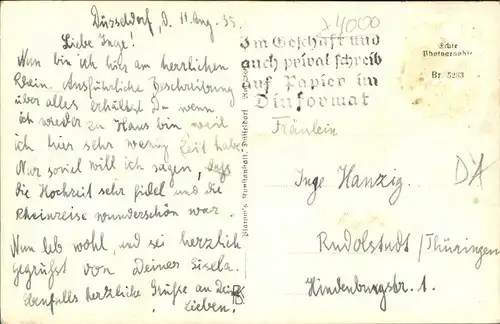 Düsseldorf, d. 11. Aug. 35.
Liebe Inge!
Nun bin ich hier am herrlichen
Rhein. Ausführliche Beschreibung
über alles erhältst Du wenn
ich wieder zu Haus bin, weil
ich hier sehr wenig Zeit habe.
Nur soviel will ich sagen, daß
die Hochzeit sehr fidel und die
Rheinreise wunderschön war.
Nun leb wohl, und sei herzlich
gegrüßt von Deiner Gisela.
Ebenfalls herzliche Grüße an Deine
Lieben.
Im Geschäft und
auch privat schreib
auf Papier im
Dinformat
Düsseldorf
74000
Echte
Photographie
Br. 5283
Fräulein
Inge Hanzig.
Rudolstadt/Thüringen
Hindenburgstr. 1.